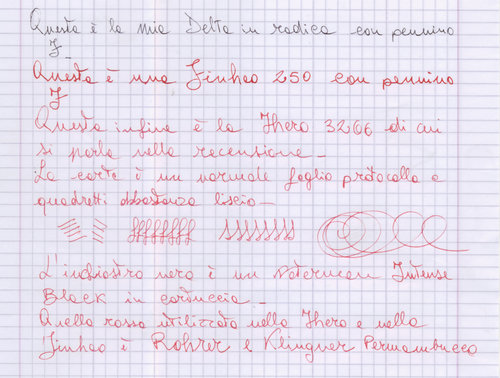 Questa è la mia Delta in radica con pennino
F -
Questa è una Jinhao 250 con pennino
F
Questa infine è la Jhero 3266 di cui
si parla nella recensione -
La carta è un normale foglio protocollo a
quadretti abbastanza liscio -
L'inchiostro nero è un Waterman Intense
Black in cartuccia -
Quello rosso utilizzato nella Jhero e nella
Jinhao è Rohrer e Klingner Pernambucco